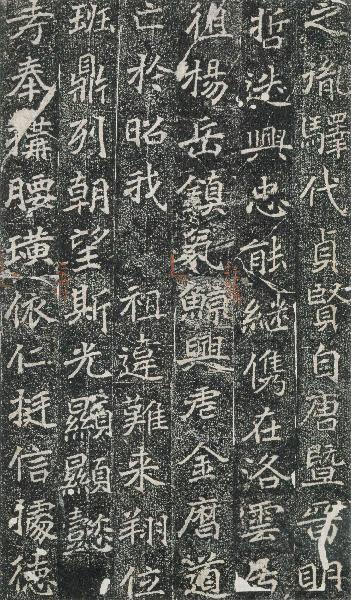 之胤驛代貞賢自唐暨晉明
哲迭興忠能繼儁在洛雲居
徂揚岳鎮氣興君金麿道
亡於昭我祖違難来翔位
班鼎列朝望斯光顯顯懿
考奉構腰璜依仁挺信據德